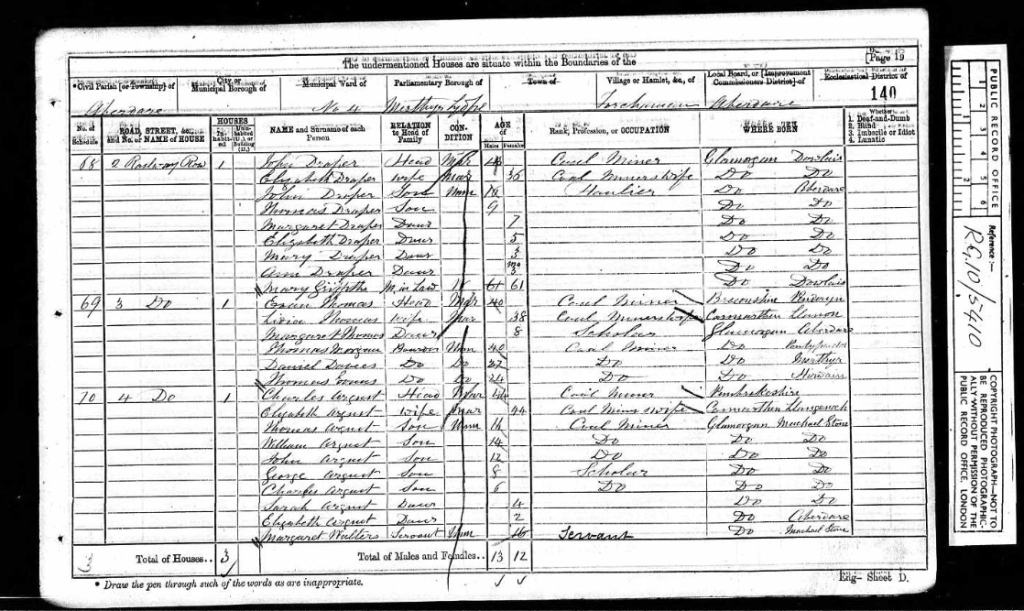 Page 19
The undermentioned Houses are situate within the Boundaries of the
Civil Parish [or Township] of
City or Municipal Borough of
Municipal Ward of
Parliamentary Borough of
Town of
Village or Hamlet, &c., of
Local Board, or [Improvement Commissioners District] of
Ecclesiastical District of
Aberdare No 4 Merthyr Tydfil Aberdare 140
No. of Schedule
ROAD, STREET, &c., and No. or NAME of HOUSE
HOUSES
Inhabited
Uninhabited (U.), or Building (B.)
NAME and Surname of each Person
RELATION to Head of Family
CONDITION
AGE of
Males Females
Rank, Profession, or OCCUPATION
WHERE BORN
Whether
1. Deaf-and-Dumb
2. Blind
3. Imbecile or Idiot
4. Lunatic
68 2 Railway Row 1 John Draper Head Mar Coal Miner Glamorgan Dowlais
Elizabeth Draper wife Mar 36 Coal Miners wife Do Do
John Draper Son Unm Haulier Do Aberdare
Thomas Draper Son 9 Do Do
Margaret Draper Daur 7 Do Do
Elizabeth Draper Daur 5 Do Do
Mary Draper Daur 3 Do Do
Ann Draper Daur mo 3 Do Do
Mary Griffiths M. in Law W 61 Do Dowlais
69 3 Do 1 Evan Thomas Head Mar 40 Coal Miner Breconshire Penderyn
Thomas wife Mar 38 Coal Miners wife Carmarthen Llannon
Margaret Thomas Daur 8 Scholar Glamorgan Aberdare
Thomas Morgan Boarder Unm 40 Coal Miner Do
Daniel Davies Do Do 27 Do Do Merthyr
Thomas Evans Do Do 24 Do Do Hirwain
70 4 Do 1 Charles Argust Head Mar Coal Miner Pembrokeshire
Elizabeth Argust wife Mar 44 Coal Miners wife Carmarthen Llangennech
Thomas Argust Son Unm 16 Coal Miner Glamorgan Michael Stone
William Argust Son 14 Do Do Do
John Argust Son 12 Do Do Do
George Argust Son 8 Scholar Do Do
Charles Argust Son 6 Do Do Do
Sarah Argust Daur 4 Do Do
Elizabeth Argust Daur 2 Do Aberdare
Margaret Watters Servant Unm 16 Servant Do Michael Stone
3 Total of Houses.. 3 Total of Males and Females.. 13 12
* Draw the pen through such of the words as are inappropriate.
Eng- Sheet D.
PUBLIC RECORD OFFICE
1 2 3 4 5 6
Reference:-
RG.10/5410
COPYRIGHT PHOTOGRAPH-NOT TO BE REPRODUCED PHOTOGRAPHICALLY WITHOUT PERMISSION OF THE PUBLIC RECORD OFFICE, LONDON